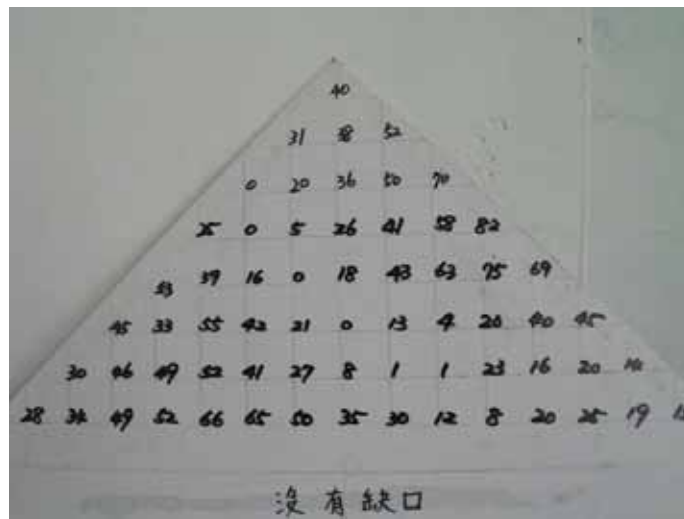 40
31 38 52
0 20 36 50 70
25 0 5 26 41 58 82
53 39 16 0 18 43 63 75 69
45 33 55 42 21 0 13 4 20 40 45
30 46 49 52 41 27 8 1 1 23 16 20
28 34 49 52 66 65 50 35 30 12 8 20 25 19
沒有缺口